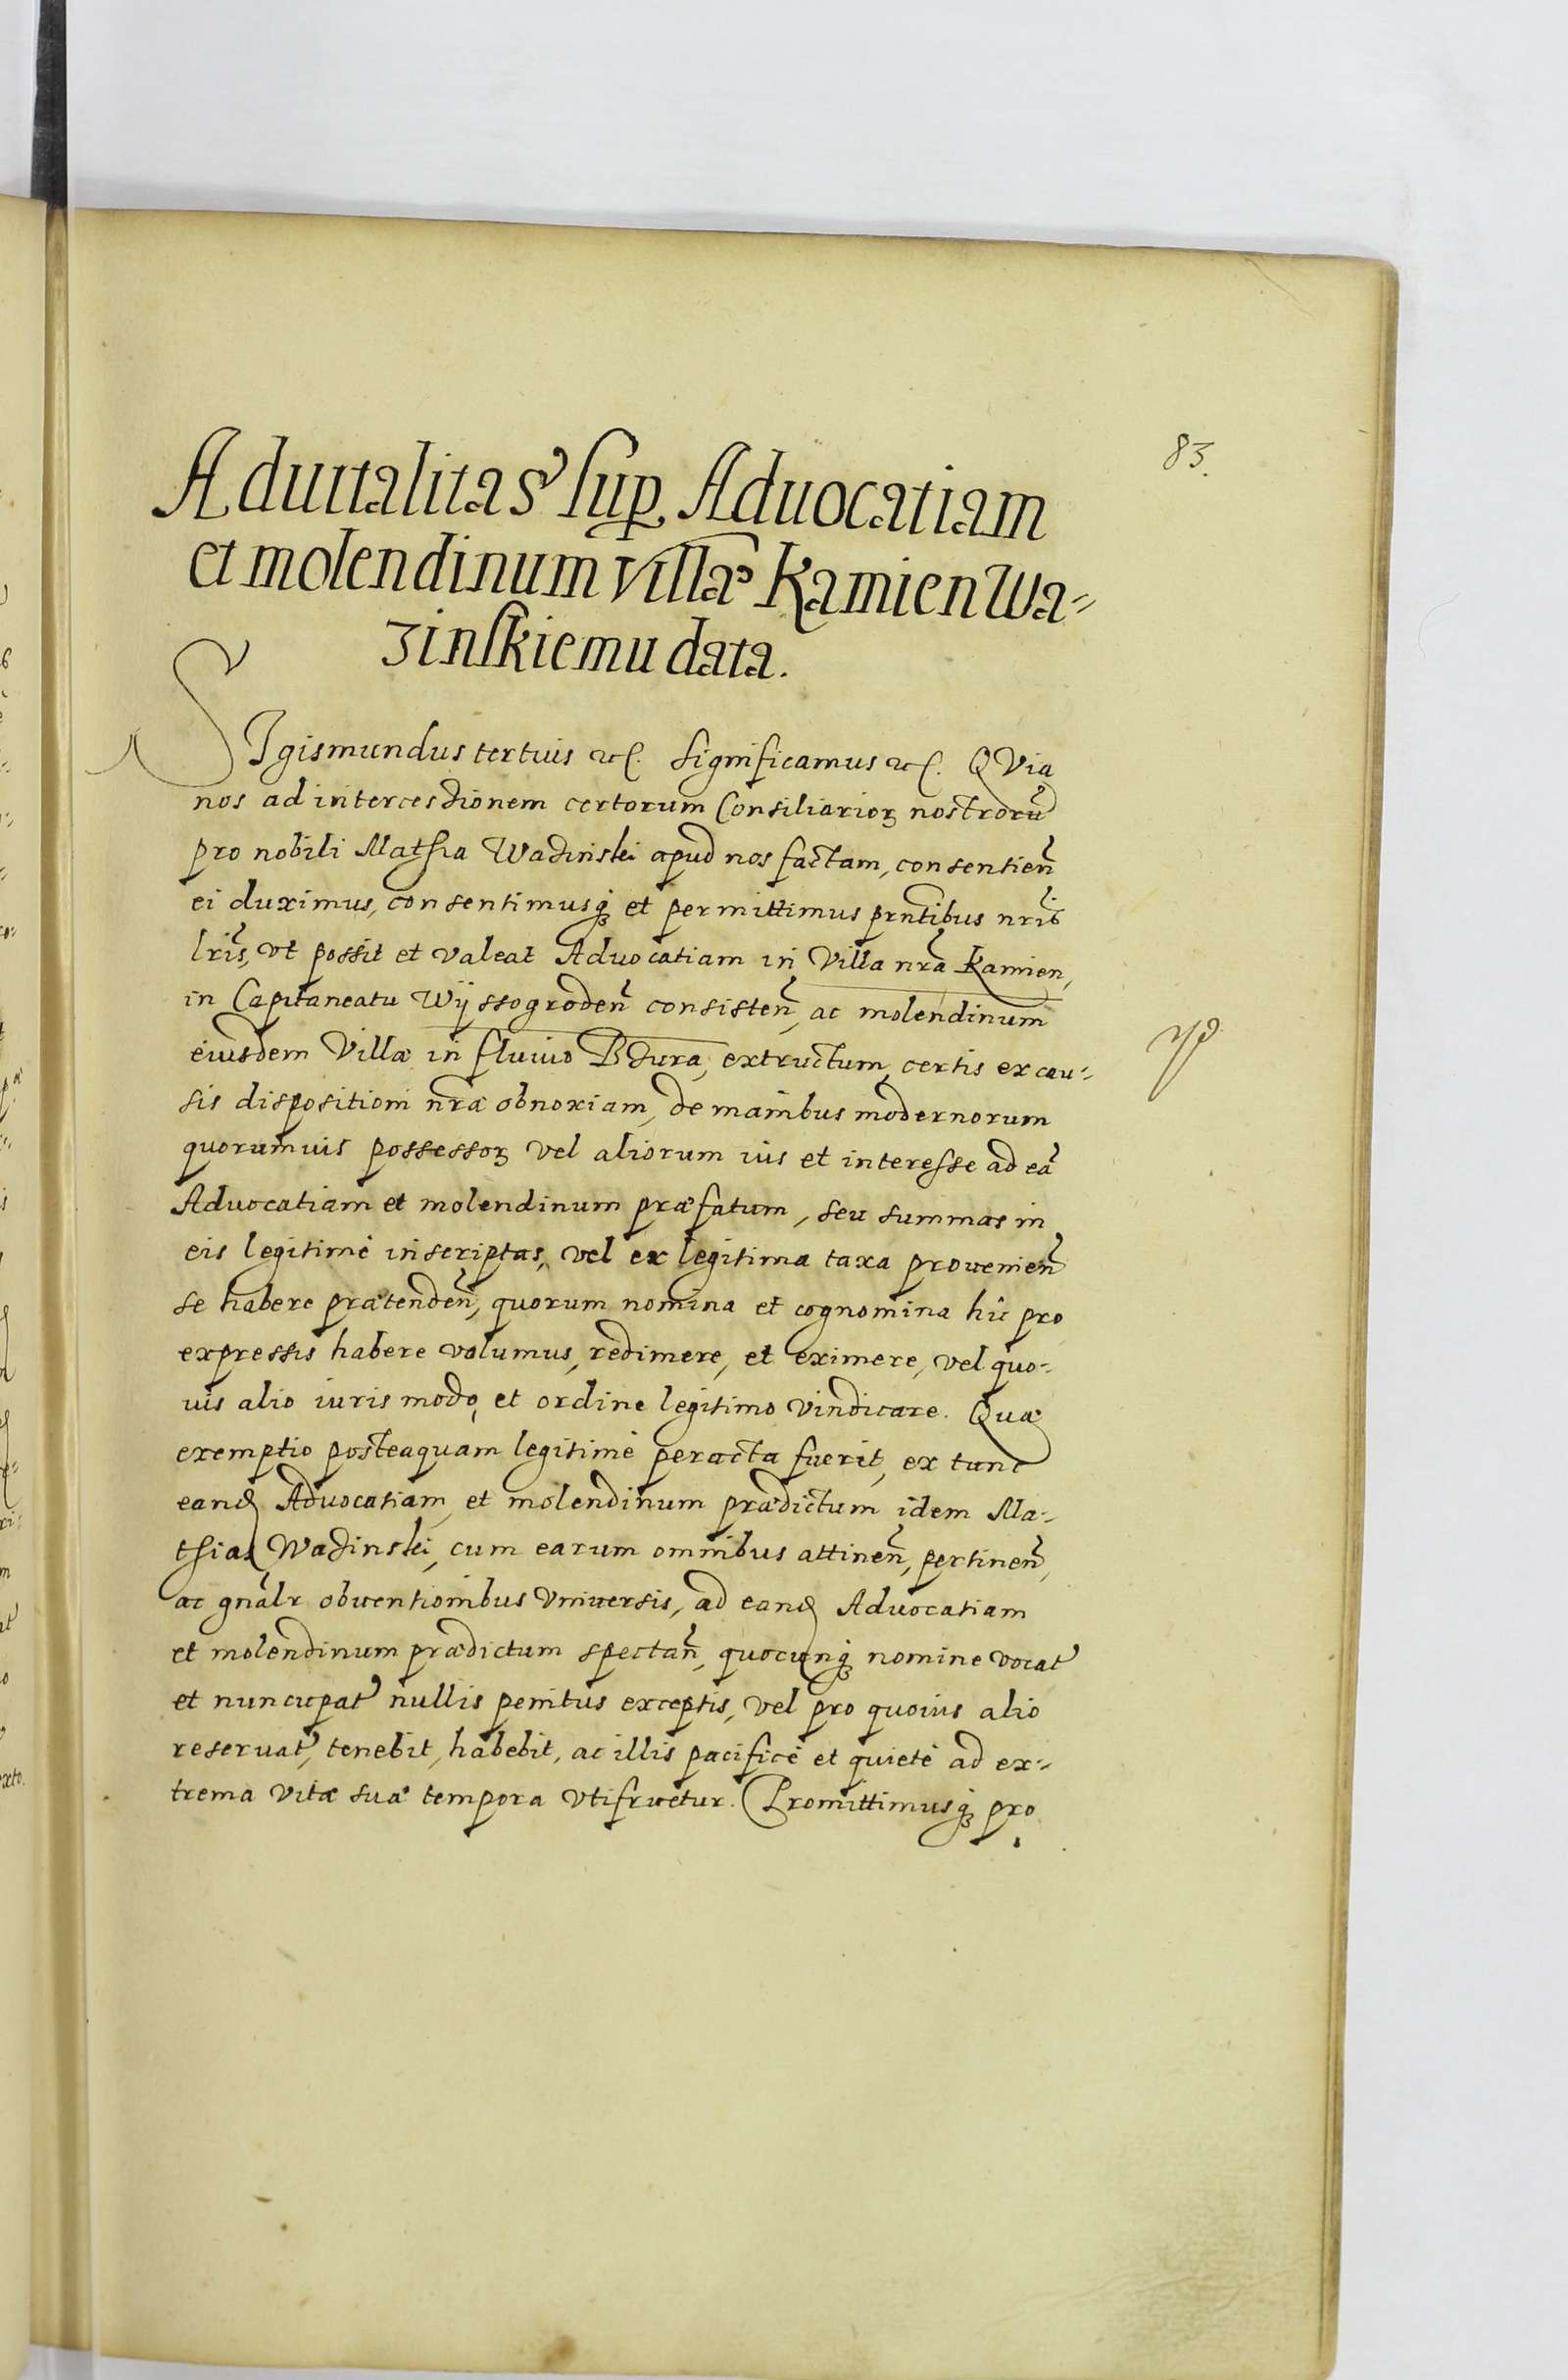 83.
Aduitalitas sup Aduocatiam
et molendinum villæ Kamien Wa=
zinskiemu data.
SIgismundus tertius etc. Significamus etc. QVia
nos ad intercessionem certorum Consiliarior nostrorũ
pro nobili Mathia Wazinski apud nos factam, consentień
ei duximus, consentimusq; et permittimus pñtibus nrĩs
lrĩs, vt possit et valeat Aduocatiam in Villa nrã Kamien,
in Capitaneatu Wÿssogrodeñ consisteñ, ac molendinum
eiusdem Villæ in fluuio Bzura, extructum, certis ex cau=
sis dispositioni nræ obnoxiam, de manibus modernorum
quorumuis possessor vel aliorum ius et interesse ad eã
Aduocatiam et molendinum præfatum, seu summas in
eis legitimè inscriptas, vel ex legitima taxa prouenieñ
se habere prætendeñ, quorum nomina et cognomina hîc pro
expressis habere volumus, redimere, et eximere, vel quo=
uis alio iuris modo, et ordine legitimo vindicare. Quæ
exemptio posteaquam legitimè peracta fuerit, ex tunc
eand Aduocatiam, et molendinum prædictum idem Ma=
thias Wazinski, cum earum omnibus attineñ, pertineñ,
ac gnãlr obuentionibus vniuersis, ad eand Aduocatiam
et molendinum prædictum spectañ, quocunq; nomine vocat
et nuncupat nullis penitus exceptis, vel pro quouis alio
reseruat, tenebit, habebit, ac illis pacificè et quietè ad ex=
trema vitæ suæ tempora vtifruetur. Promittimusq; pro